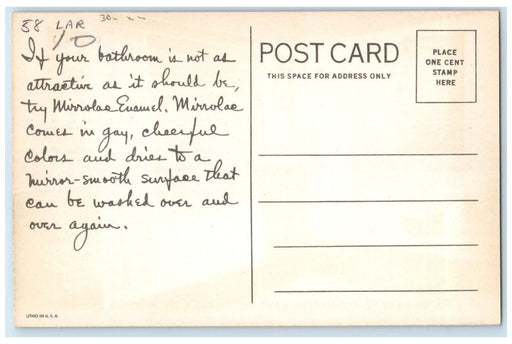 88 LAR 30-
10
If your bathroom is not as
attractive as it should be,
try Mirrolac Enamel. Mirrolac
comes in gay, cheerful
colors and dries to a
mirror-smooth surface that
can be washed over and
over again.
POST CARD
THIS SPACE FOR ADDRESS ONLY
PLACE
ONE CENT
STAMP
HERE
LITHO IN U.S.A.